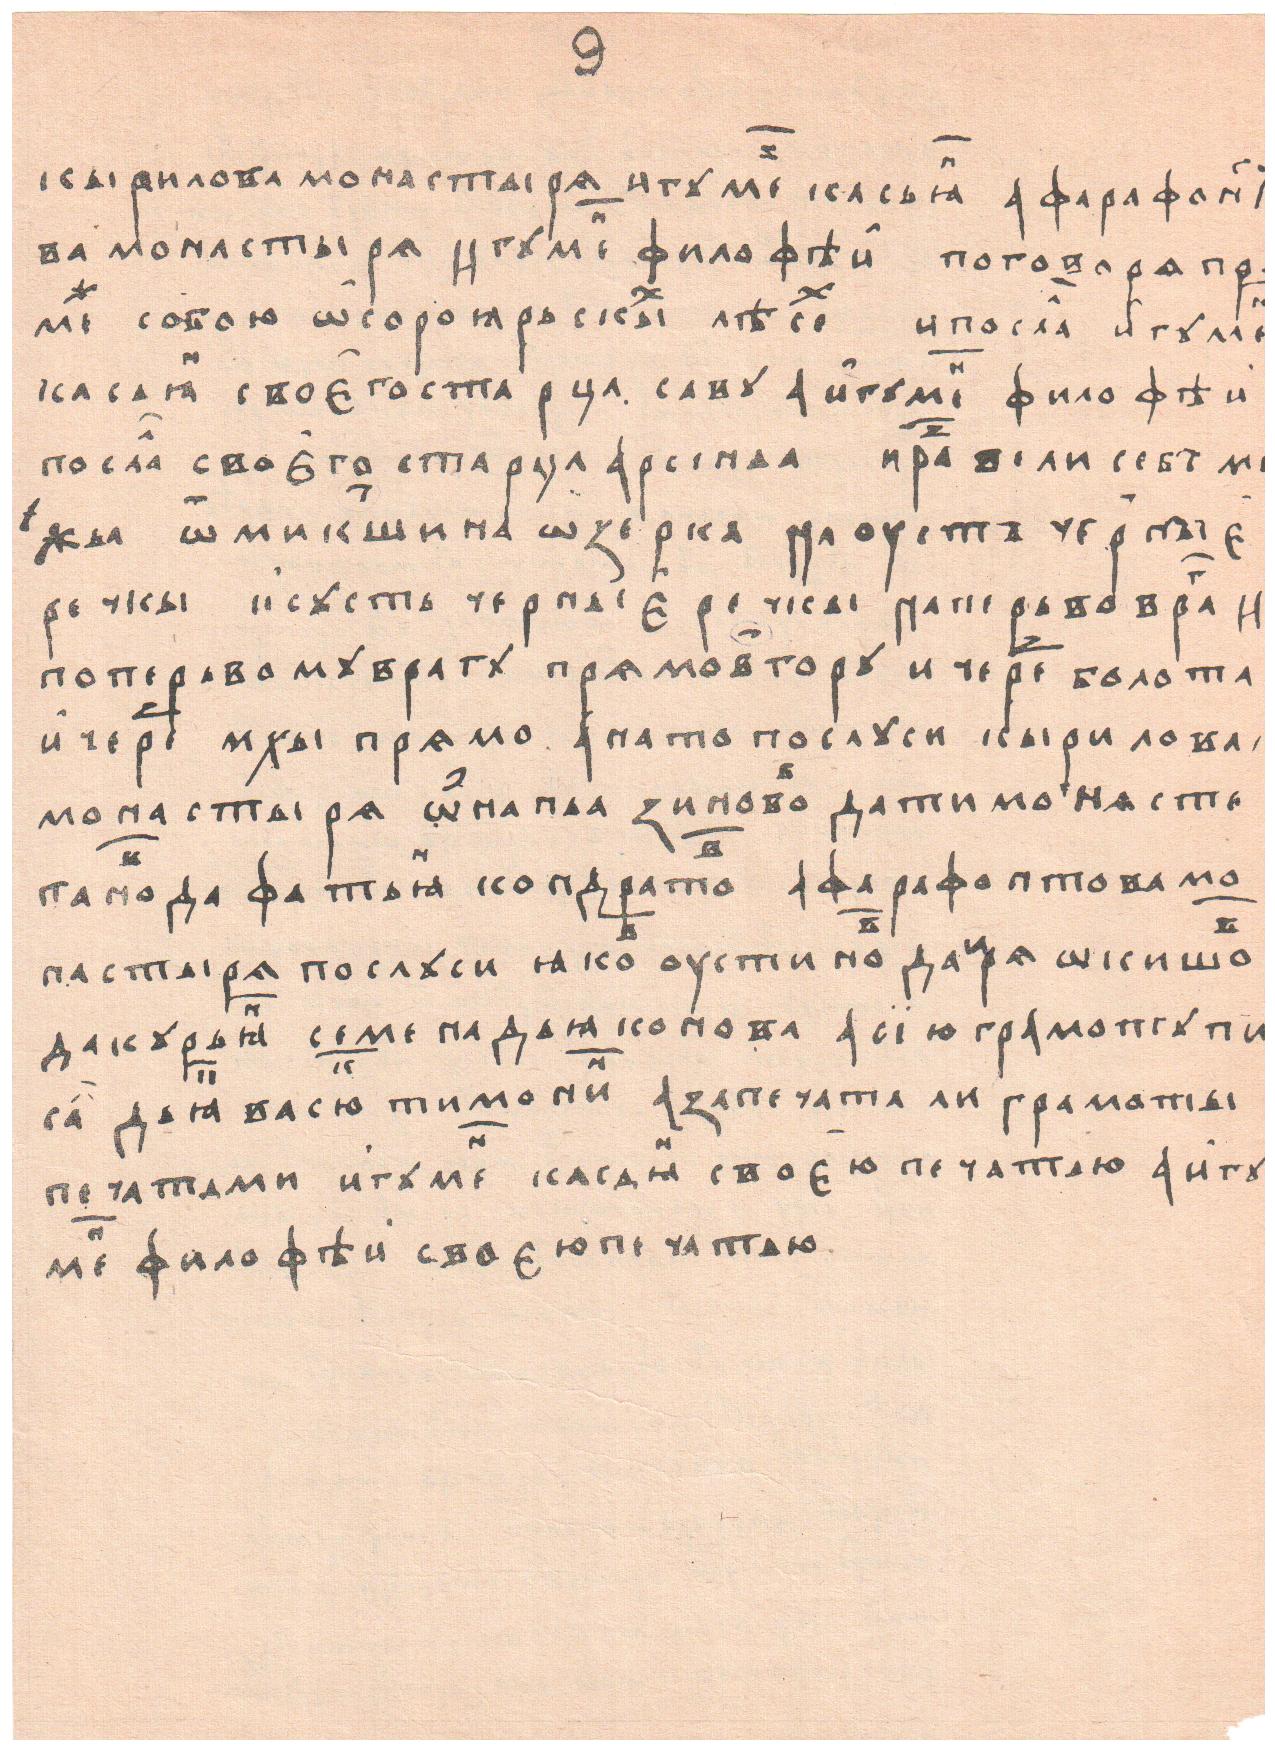 9
кырилова монастыря игуме͞н касья͞н а фарафон͞т
ва монастыря игуме͞н филофѣй поговоря про
ме͞ж собою ѡ сорояръскы͞х лѣсе͞х и посла͞л игуме͞н
касья͞н своєго старца саву а игуме͞н филофѣй
посла͞л своєго старца арсенья и ра͞звели себѣ ме
жы ѿ микшина ѡзерка на оусть черныє
речкы и с усть черныє речкы на перьво вра͞г и
по перьвому врагу прямо в гору и чере͞з болота
и чере͞з мхы прямо а на то послуси кырилова
монастыря ѡнанья зиново͞в да тимоня сте
пано͞в да фатья͞н кондрато͞в а фарафонтова мо
настыря послуси яко͞в оустино͞в да иря ѡкишо͞в
да курья͞н семе͞н а дьяконова а сїю грамоту пи
са͞л дья͞к васю͞к тимони͞н а запечатали грамоты
печатьми игуме͞н касья͞н своєю печатью а игу
ме͞н филофѣй своєю печатью